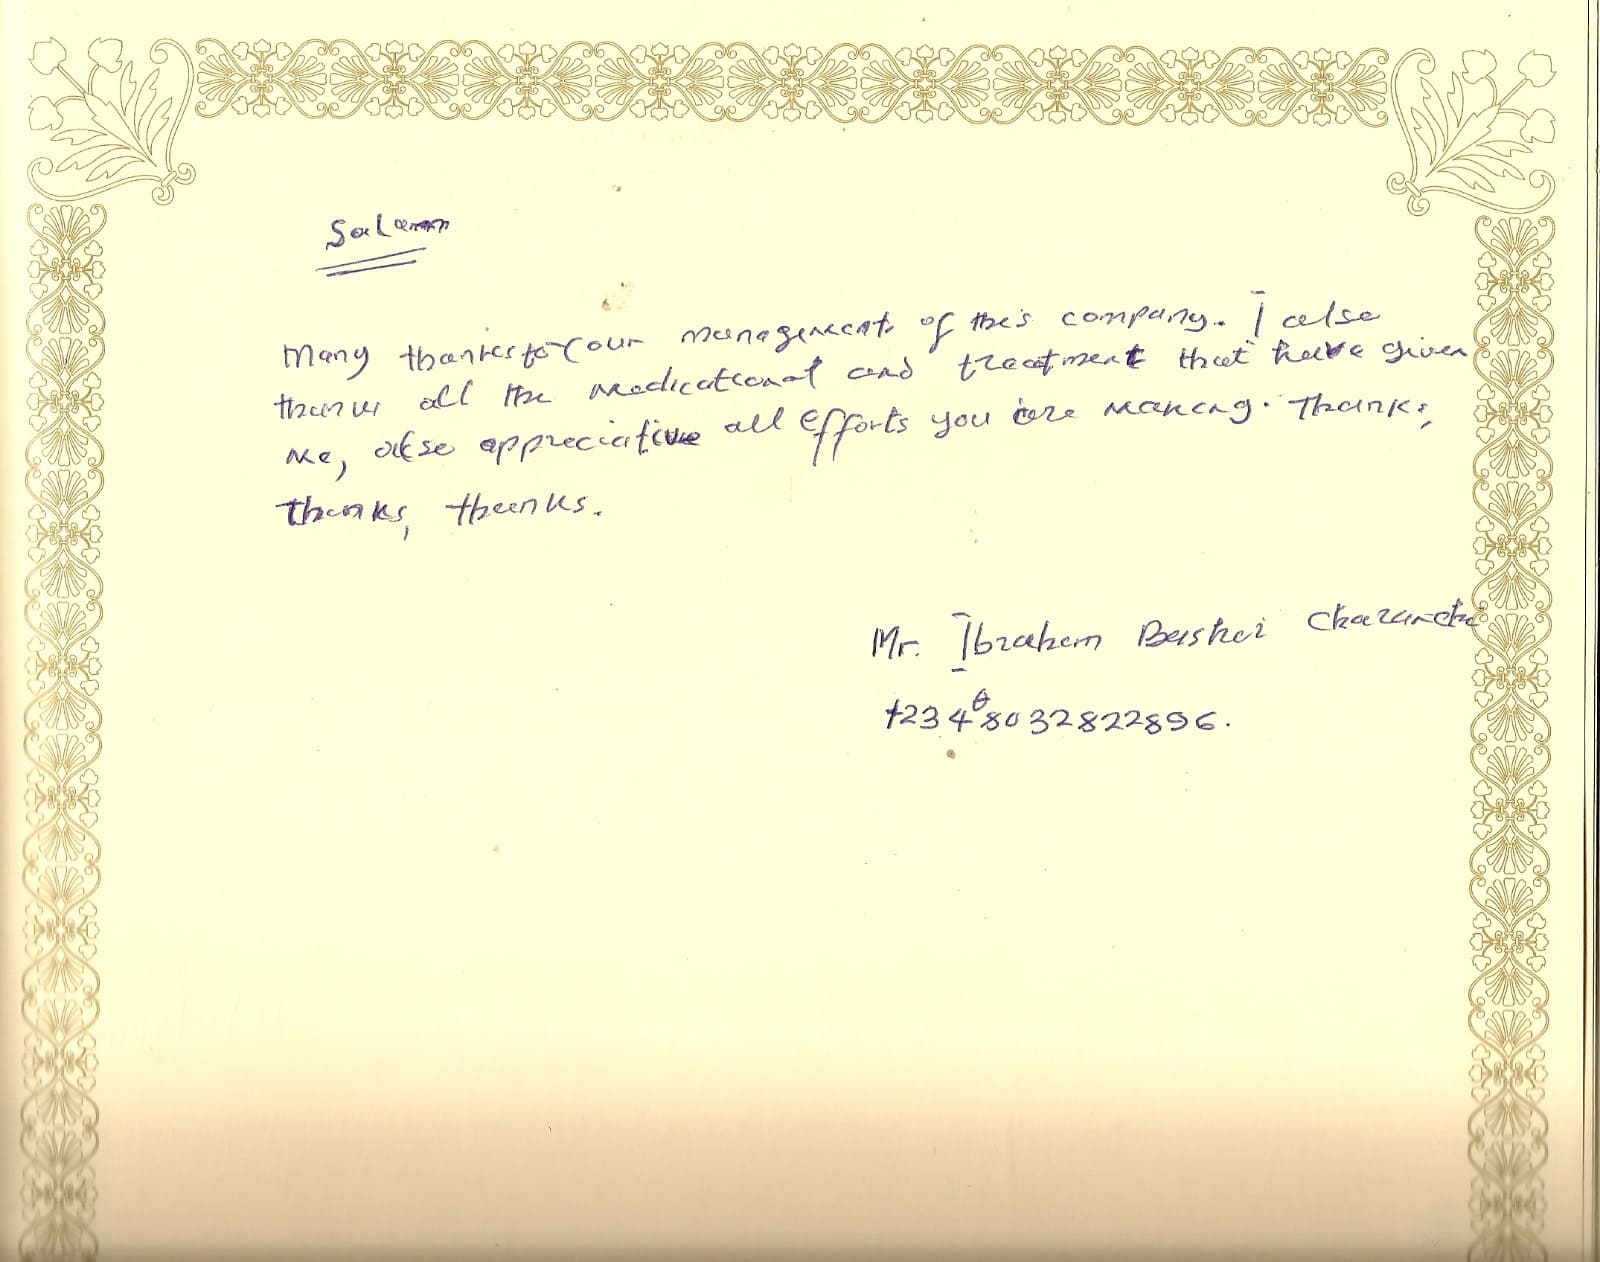 Salam
Many thanks to your management of this company. I also
thanks all the medicational and treatment that have given
me, also appreciative all efforts you are making. Thanks,
thanks, thanks.
Mr. Ibrahim
+2348032822896.